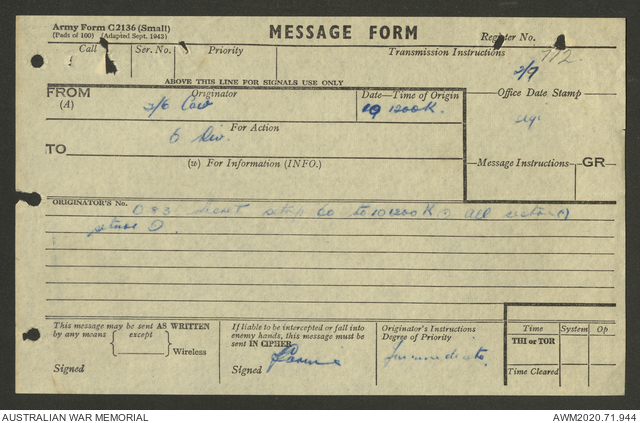 Army Form C2136 (Small)
(Pads of 100) (Adapted Sept. 1943)
MESSAGE FORM
Register No.
772
Call
Ser. No.
Priority
Transmission Instructions
2/9
ABOVE THIS LINE FOR SIGNALS USE ONLY
FROM
(A)
Originator
2/6 Cav
Date—Time of Origin
10 1200K.
Office Date Stamp
For Action
TO
6 Div.
(w) For Information (INFO.)
Message Instructions
GR
ORIGINATOR'S No.
O 83 to 101200K all
This message may be sent AS WRITTEN
by any means { except } Wireless
Signed
If liable to be intercepted or fall into
enemy hands, this message must be
sent IN CIPHER.
Signed
Originator's Instructions
Degree of Priority
Immediate
Time
System
Op
THI or TOR
Time Cleared
AUSTRALIAN WAR MEMORIAL
AWM2020.71.944